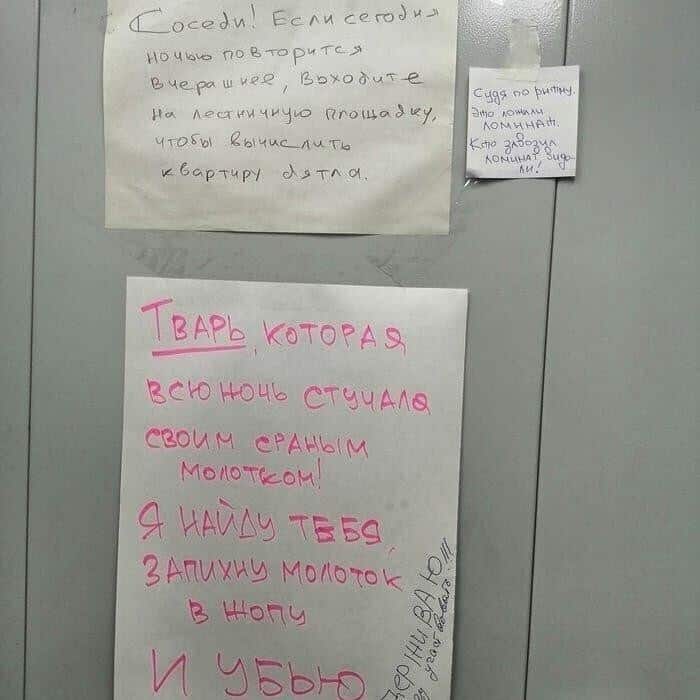 Соседи! Если сегодня
ночью повторится
вчерашнее, выходите
на лестничную площадку,
чтобы вычислить
квартиру дятла.
Судя по ритму.
Это ложили
ломинат.
Кто завозил
ломинат видо-
ли!
Тварь, которая
всю ночь стучала
своим сраным
молотком!
Я найду тебя,
запихну молоток
в жопу
и убью